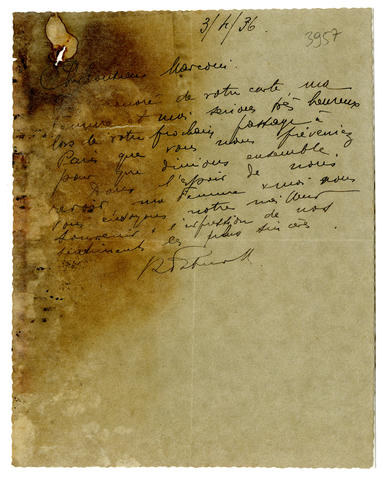 3/4/36.
3957
Marconi
de votre carte, ma
femme et moi serions très heureux
lors de votre prochain passage à
Paris que vous nous préveniez
pour que dinions ensemble.
Dans l'espoir de vous
revoir ma femme & moi vous
vous envoyons notre meilleur
souvenir & l'expression de nos
sentiments les plus sincères.